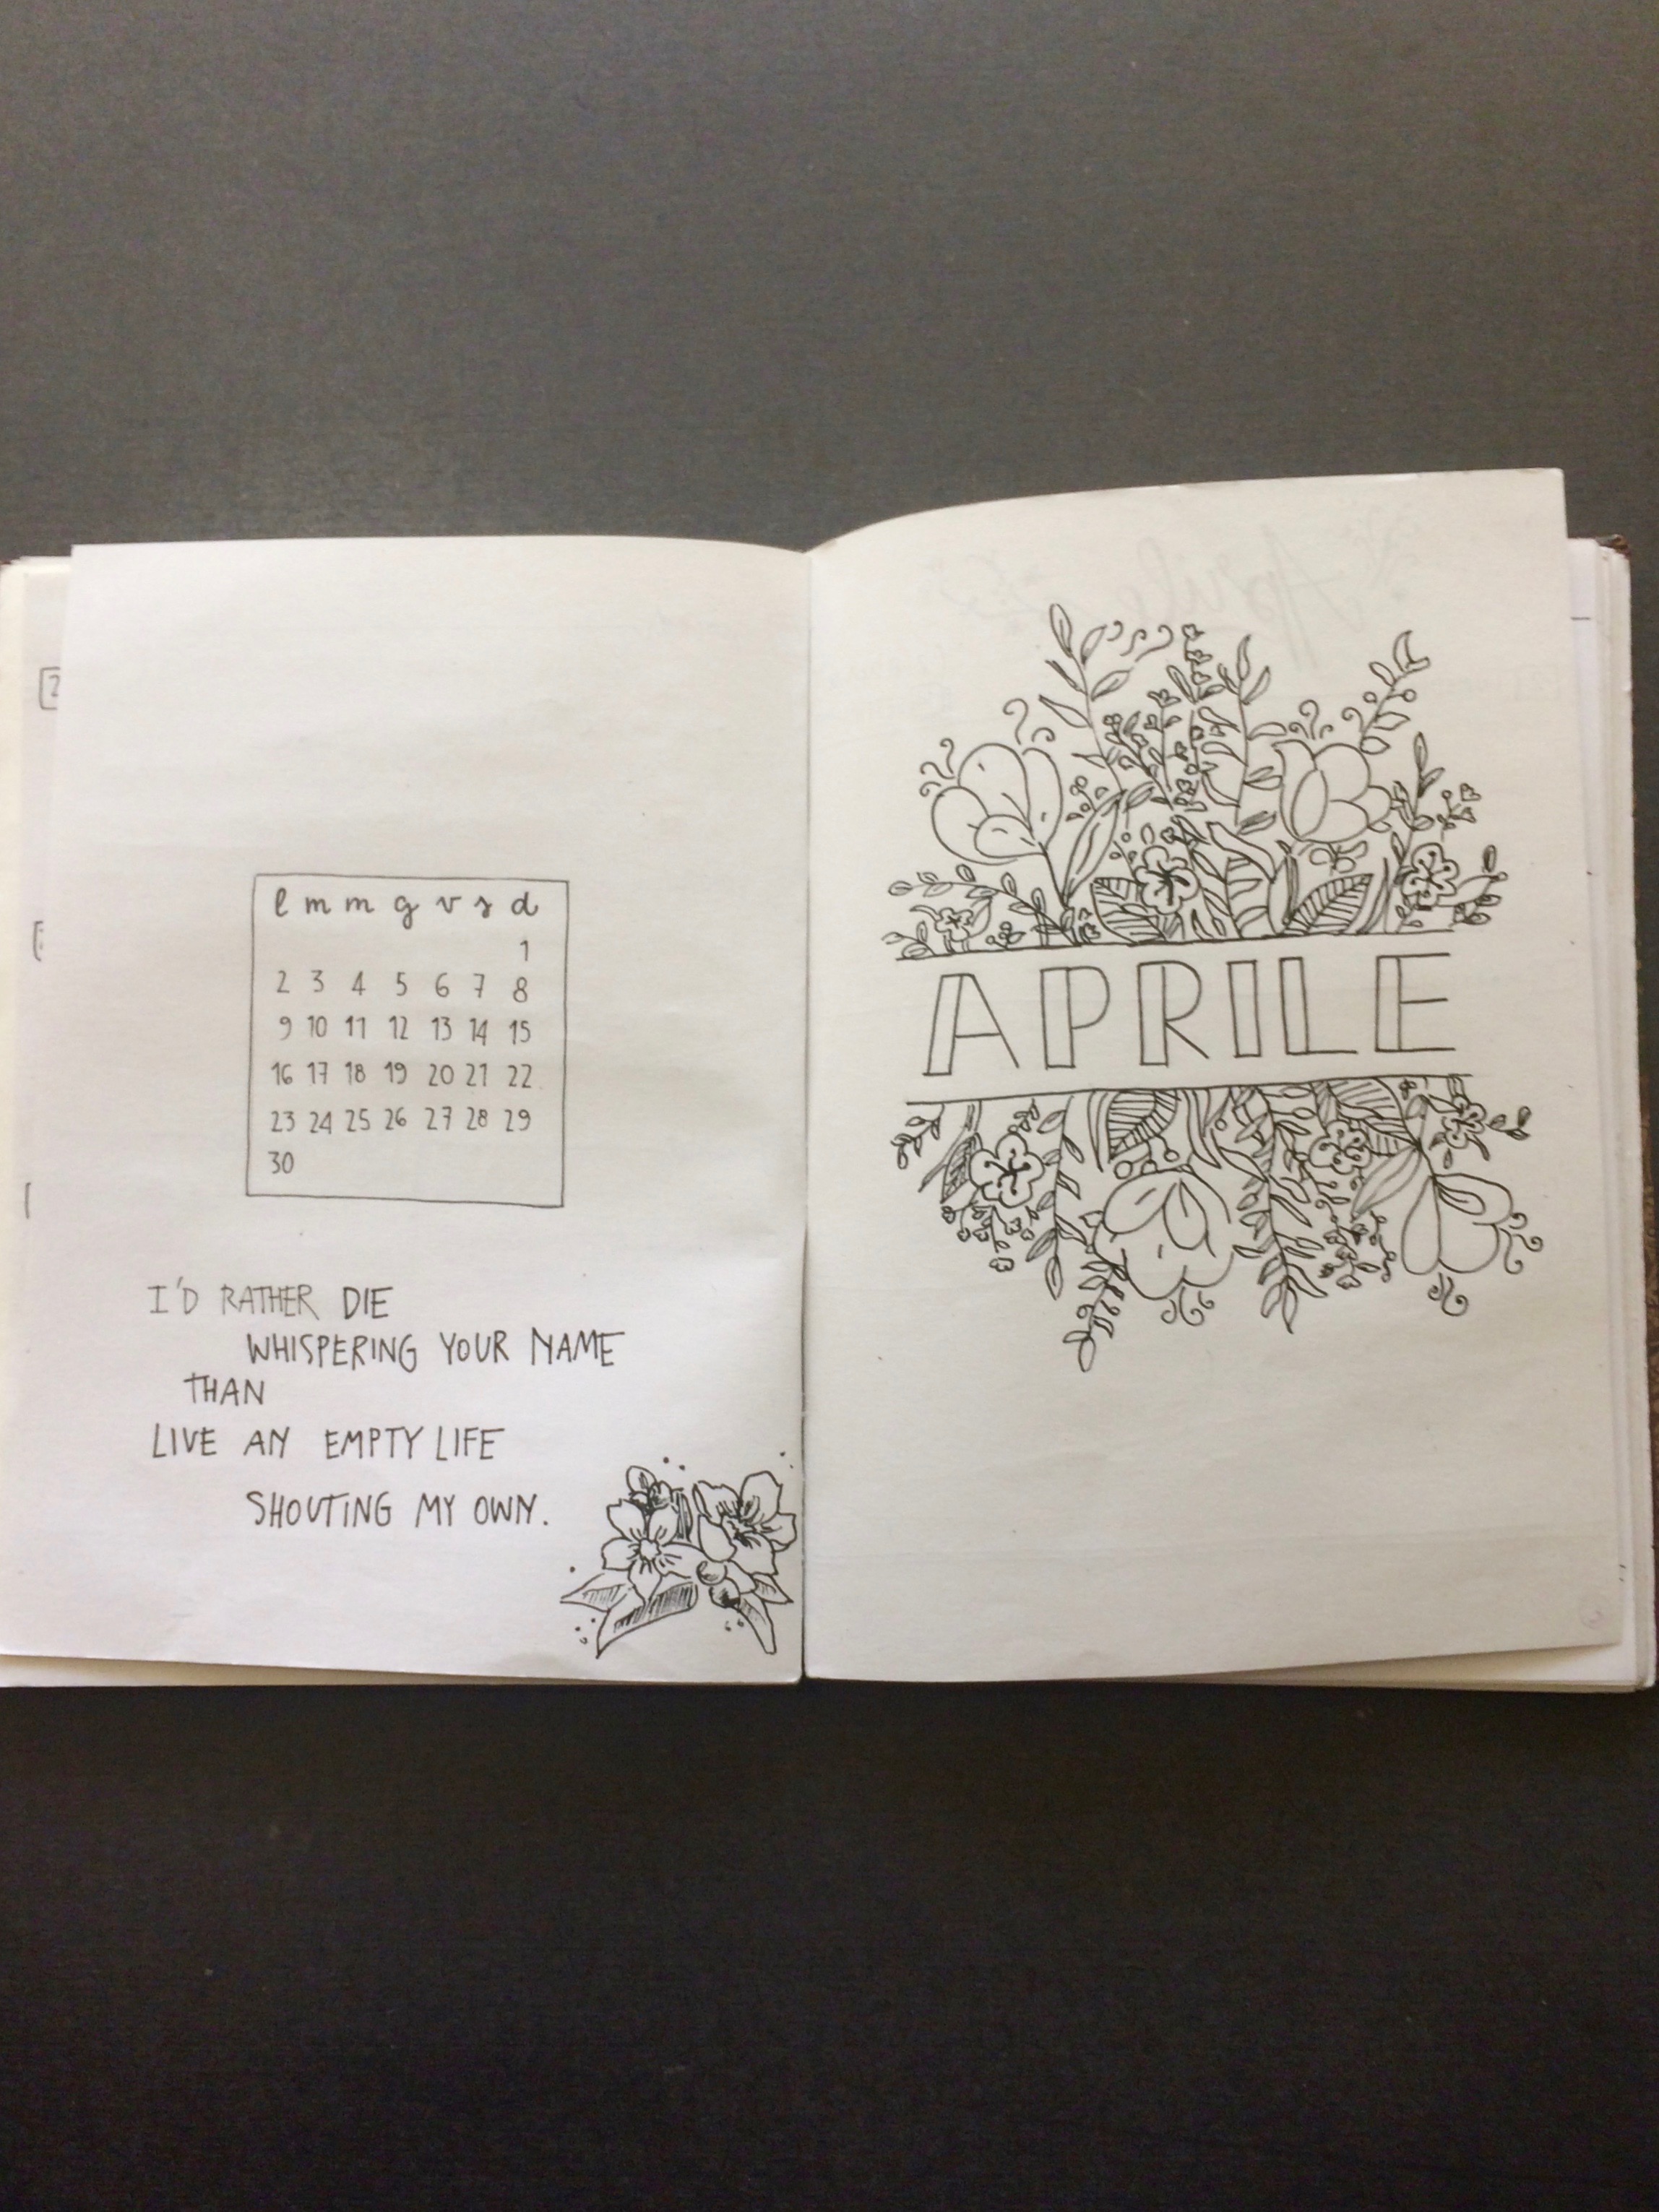 l m m g v s d
1
2 3 4 5 6 7 8
9 10 11 12 13 14 15
16 17 18 19 20 21 22
23 24 25 26 27 28 29
30
I'D RATHER DIE
WHISPERING YOUR NAME
THAN
LIVE AN EMPTY LIFE
SHOUTING MY OWN.
APRILE